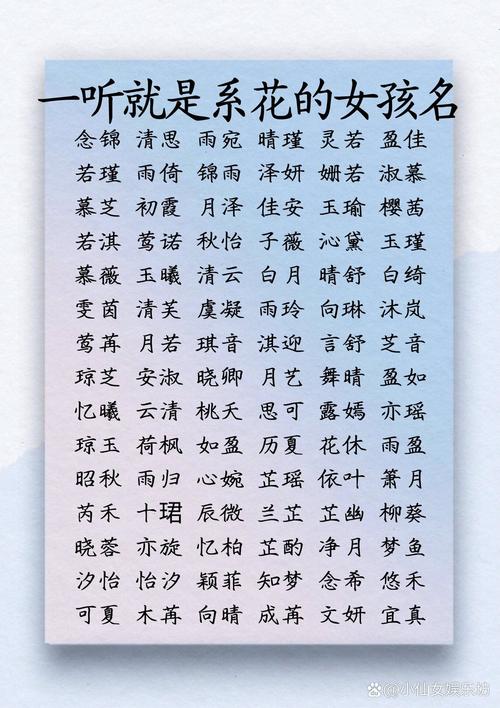 一听就是系花的女孩名
念锦 清思 雨宛 晴瑾 灵若 盈佳
若瑾 雨倚 锦雨 泽妍 姗若 淑慕
慕芝 初霞 月泽 佳安 玉瑜 樱茜
若淇 莺诺 秋怡 子薇 沁黛 玉瑾
慕薇 玉曦 清云 白月 晴舒 白绮
雯茵 清芙 虞凝 雨玲 向琳 沐岚
莺苒 月若 琪音 淇迎 言舒 芝音
琼芝 安淑 晓卿 月艺 舞晴 盈如
忆曦 云清 桃夭 思可 露嫣 亦瑶
琼玉 荷枫 如盈 历夏 花休 雨盈
昭秋 雨归 心婉 芷瑶 依叶 箫月
芮禾 十珺 辰微 兰芷 芷幽 柳葵
晓蓉 亦旋 忆柏 芷酌 净月 梦鱼
汐怡 怡汐 颖菲 知梦 念希 悠禾
可夏 木苒 向晴 成苒 文妍 宜真
@小仙女娱乐坊